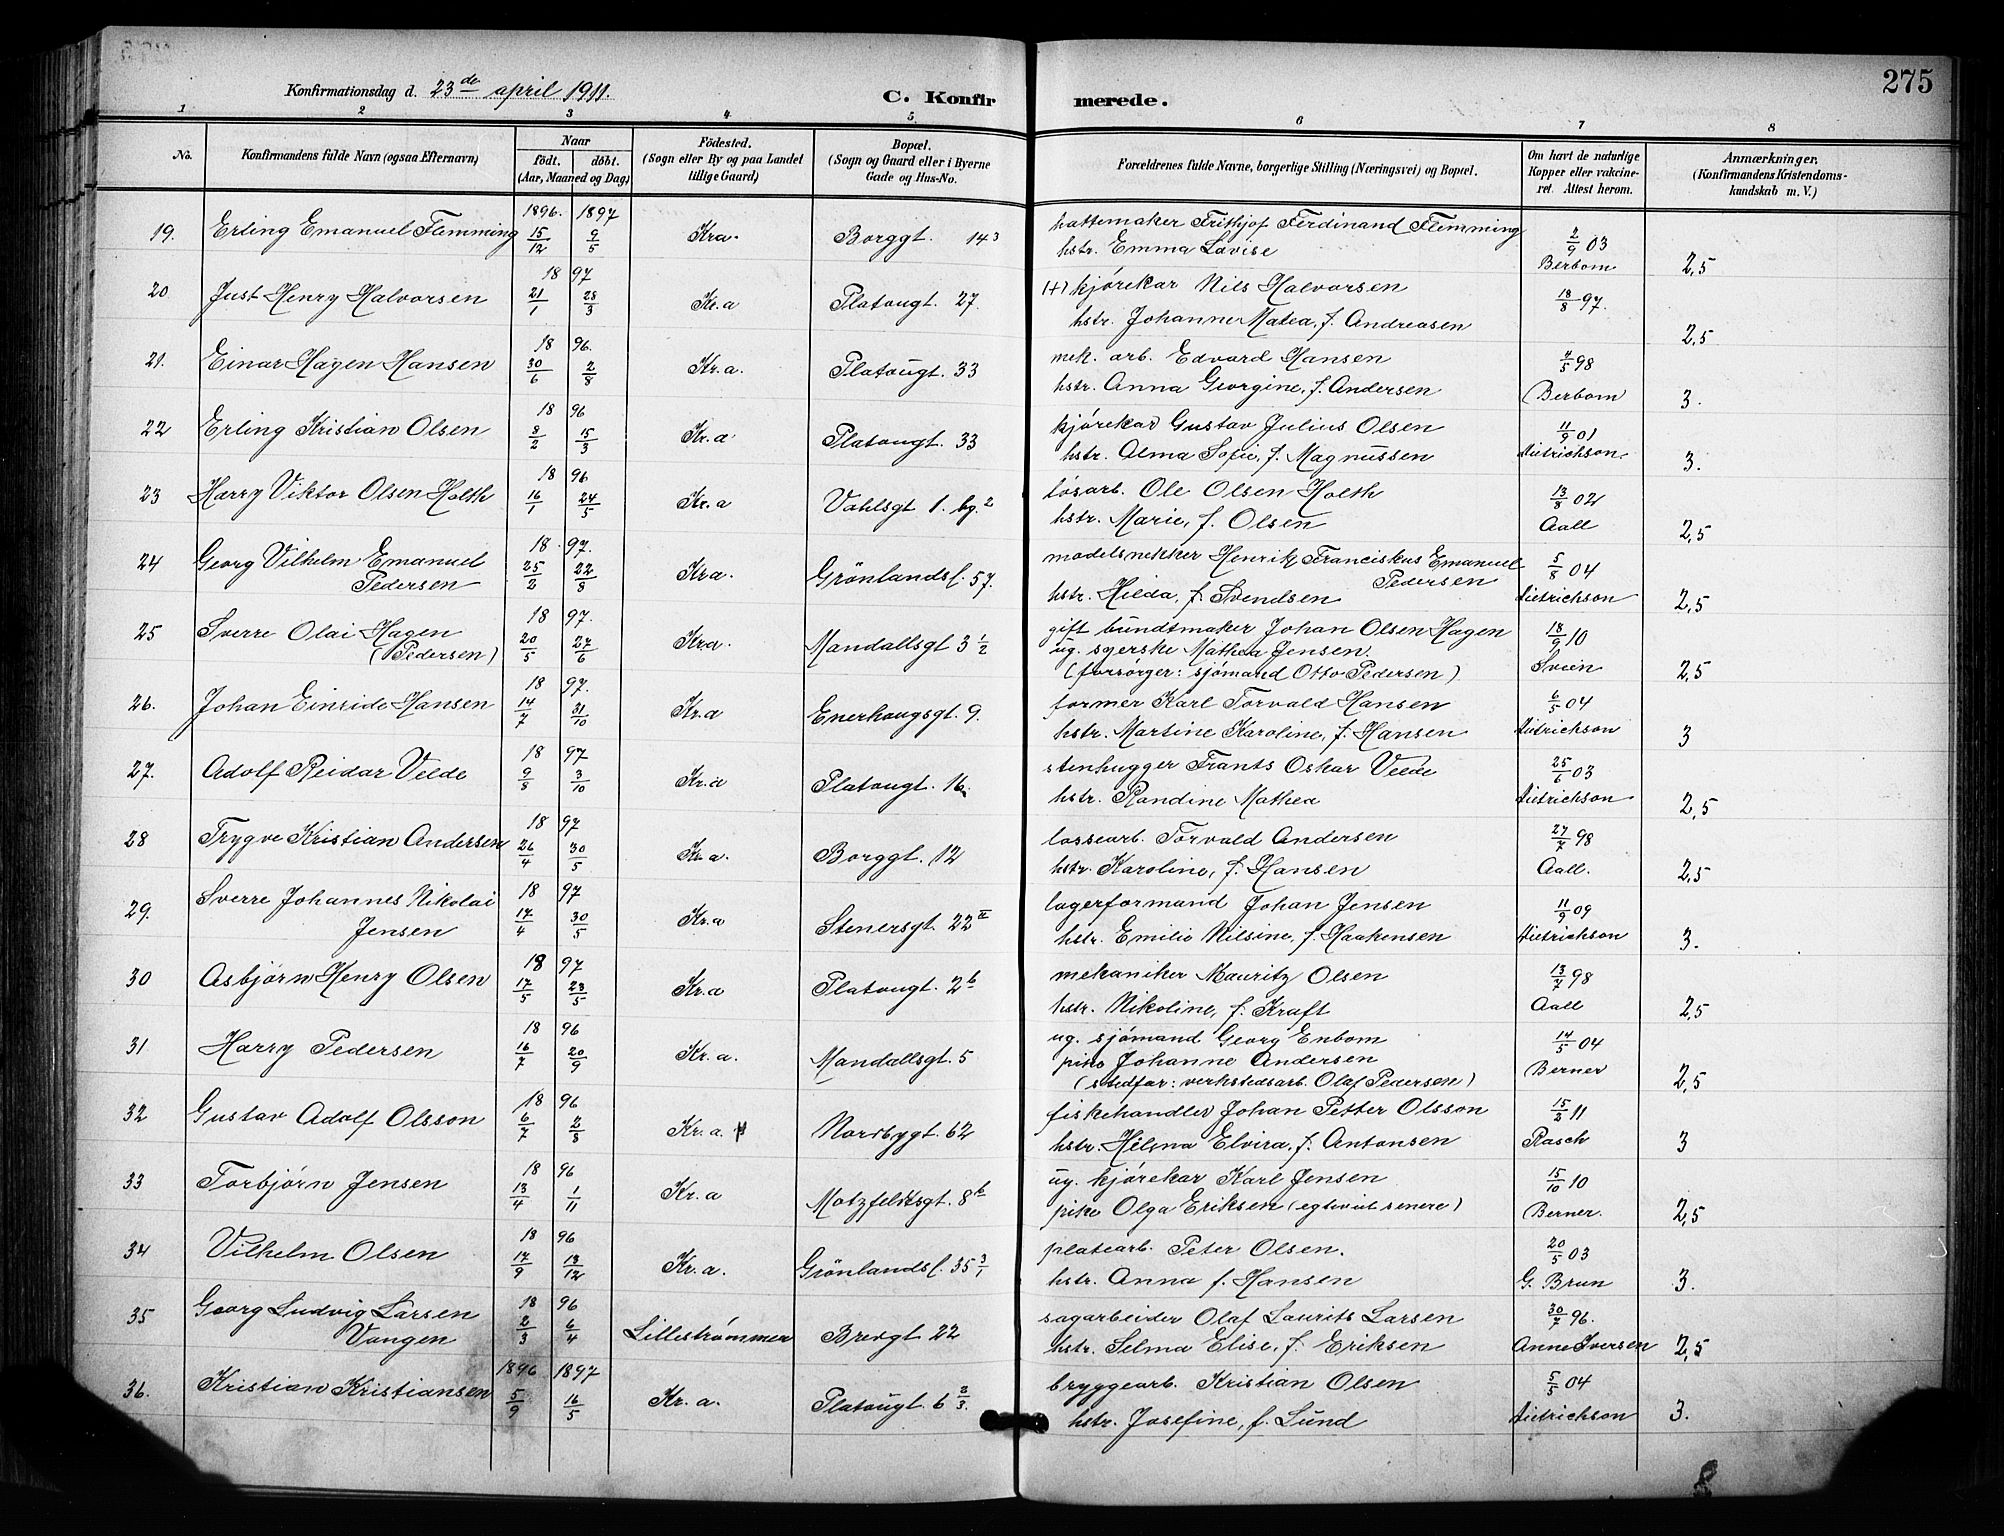 275
Konfirmationsdag d. 23de april 1911.
C. Konfirmerede.
1 2 3 4 5 6 7 8
No. | Konfirmandens fulde Navn (ogsaa Efternavn) | Naar födt. döbt. (Aar, Maaned og Dag) | Födested. (Sogn eller By og paa Landet tillige Gaard) | Bopæl. (Sogn og Gaard eller i Byerne Gade og Hus-No. | Forældrenes fulde Navne, borgerlige Stilling (Næringsvei) og Bopæl. | Om havt de naturlige Kopper eller vakcineret. Attest herom. | Anmærkninger. (Konfirmandens Kristendomskundskab m. V.)
19. Erling Emanuel Flemming 1896. 15/12 1897 9/5 Kra. Borggt. 14³ hattemaker Frithjof Ferdinand Flemming 2/9 03
hstr. Emma Lovise Berbom 2,5
20 Just Henry Halvorsen 18 97 21/1 28/3 Kr.a Platougt. 27 (+) kjörekar Nils Halvorsen 18/8 97.
hstr. Johanne Matea, f. Andreasen 2,5
21. Einar Hagen Hansen 18 96. 30/6 2/8 Kr.a. Platougt. 33 mek. arb. Edvard Hansen 4/5 98
hstr. Anna Georgine, f. Andersen Berbom 3.
22 Erling Kristian Olsen 18 96 8/2 15/3 Kr.a Platougt. 33 kjörekar Gustav Julius Olsen 11/9 01
hstr. Alma Sofie, f. Magnussen Dietrichson 3.
23 Harry Viktor Olsen Holth 18 96 16/1 24/5 Kr.a Vahlsgt 1. bg.² lösarb. Ole Olsen Holth 13/8 02
hstr. Marie, f. Olsen Aall 2,5
24 Georg Vilhelm Emanuel 18 97. 25/2 22/8 Kra. Grönlandsl. 57. modelsnekker Henrik Franciskus Emanuel 5/8 04
Pedersen Pedersen
hstr. Hilda, f. Svendsen Dietrichson 2,5
25 Sverre Olai Hagen 18 97. 20/5 27/6 Kr.a. Mandallsgt 3 ½ gift bundtmaker Johan Olsen Hagen 18/9 10
(Pedersen) ug. syerske Mathea Jensen.
(forsörger: sjömand Otto Pedersen) Svein 2,5
26. Johan Einride Hansen 18 97. 14/7 31/10 Kr.a Enerhougsgt. 9. former Karl Torvald Hansen 6/5 04
hstr. Martine Karoline, f. Hansen Dietrichson 3
27. Adolf Reidar Velde 18 97 9/8 3/10 Kr.a Platougt. 16. stenhugger Frants Oskar Velde 25/6 03
hstr. Randine Mathea Dietrichson 2,5
28 Trygve Kristian Andersen 18 97 26/4 30/5 Kr.a. Borggt. 12 lossearb. Torvald Andersen 27/7 98
hstr. Karoline, f. Hansen Aall. 2,5
29. Sverre Johannes Nikolai 18 97 17/4 30/5 Kr.a Stenersgt. 22 II lagerformand Johan Jensen 11/9 09
Jensen hstr. Emilie Nilsine, f. Haakensen Dietrichson 3.
30 Asbjörn Henry Olsen 18 97 17/5 23/5 Kr.a Platougt. 2b mekaniker Mauritz Olsen 13/7 98
hstr. Nikoline, f. Kraft Aall 2,5
31 Harry Pedersen 18 96 16/7 20/9 Kr.a. Mandallsgt. 5 ug. sjömand Georg Enbom 14/5 04
pike Johanne Andersen Berner
(stedfar: verkstedsarb. Olaf Pedersen) 2,5
32 Gustav Adolf Olsson 18 96 6/7 2/8 Kr.a. Nordbygt. 62 fiskehandler Johan Petter Olsson 15/3 11
hstr. Helena Elvira, f. Antonsen Rasch 3
33 Torbjörn Jensen 18 96 13/4 1/11 Kr.a Motzfeldtsgt. 8b ug. kjörekar Karl Jensen 15/10 10
pike Olga Eriksen (egteviet senere) Berner. 2,5
34 Vilhelm Olsen 18 96 17/9 13/12 Kr.a. Grönlandsl. 35 3/1 platearb. Peter Olsen. 20/5 03
hstr. Anna f. Hansen G. Brun 3.
35 Georg Ludvig Larsen 18 96 2/3 6/4 Lillestrømmen Brevgt 22 sagarbeider Olaf Laurits Larsen 30/7 96.
Vangen hstr. Selma Elise, f. Eriksen Anne Iversen 2,5
36. Kristian Kristiansen 1896 5/9 1897 16/5 Kr.a. Platougt. 6 2/3. bryggearb. Kristian Olsen 5/5 04
hstr. Josefine, f. Lund Dietrichson 3.